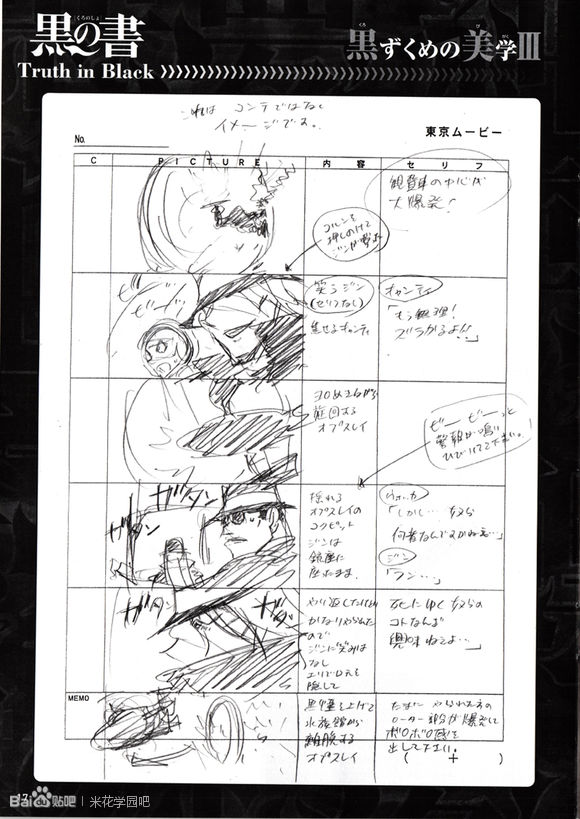 黒の書
くろのしょ
Truth in Black
黒ずくめの美学III
くろ
び
がく
これは コンテではなく
イメージです。
No.
東京ムービー
C
PICTURE
内容
セリフ
観覧車の中心が
大爆発!
コルンを
押しのけて
笑うジン
(セリフなし)
焦せるキャンティ
キャンティ
「もう無理!
ズラかるよ!!」
旋回する
オスプレイ
ビー ビーっと
警報が鳴り
ひびいて下さい。
ガタン
ガタン
揺れる
オスプレイの
コクピット
ジンは
銃座に
座ったまま。
ウォッカ
「しかし… 奴ら
何者なんでスかねぇ…」
ジン
「フン…」
ガタン
ガタン
ので
ジンに笑みは
なし
エリで口元を
隠して
死にゆく奴らの
コトなんざ
興味ねぇよ…」
MEMO
黒煙を上げて
水族館から
離脱する
オスプレイ
たまに やられた方の
ローター部分が爆発して
ボロボロ感を
出して下さい。
( + )
Bai du 贴吧 | 米花学园吧